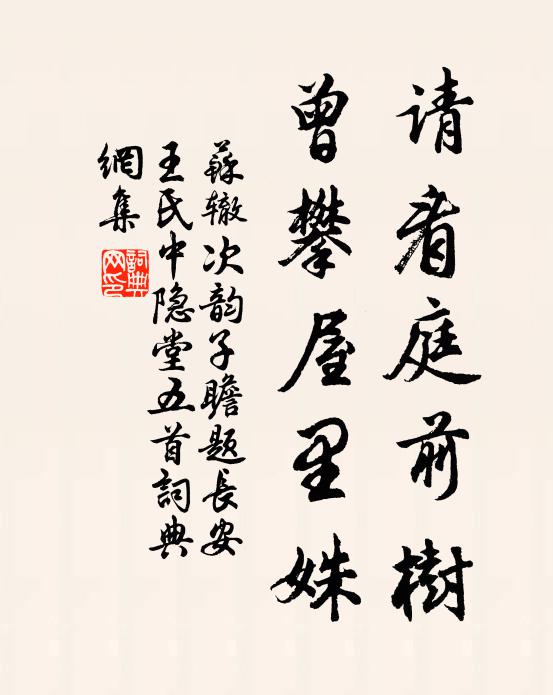 请看庭前樹
曾攀屋里姝
蘇辙次韵子瞻题長安
王氏中隐堂五首詞典
網集
詞典网印